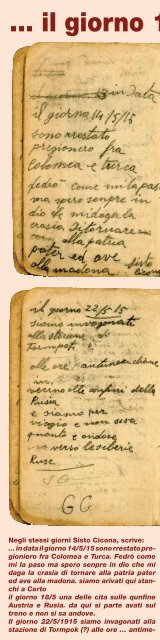 ... il giorno 1
in data
il giorno 14/5/15
sono arestato
pregionero fra
Colomea e turca
fedro come mi la pas
ma spero senpre in
dio che mi da ga la
crasia di tornare
alla patria
pater ed ave
alla madona.
il giorno 22/5-15
siamo invagonati
alla stazione di
Tormpok
alle ore antimeridiane
verno alle confini della
Rusia
e siamo per
viagio e non si sa
quanto e andare
in verso le siberie
Ruse
GC
Negli stessi giorni Sisto Cicona, scrive:
... in data il giorno 14/5/15 sono rrestato pre-
gioniero fra Colomea e Turca. Fedrò come
mi la paso ma spero senpre in dio che mi
daga la crasia di tornare alla patria pater
ed ave alla madona. siamo arivati qui stan-
chi a Certo
il giorno 18/5 una delle cita sulle qunfine
Austria e Rusia. da qui si parte avati sul
treno e non si sa andove.
Il giorno 22/5/1915 siamo invagonati alla
stazione di Tormpok (?) alle ore ... antime-